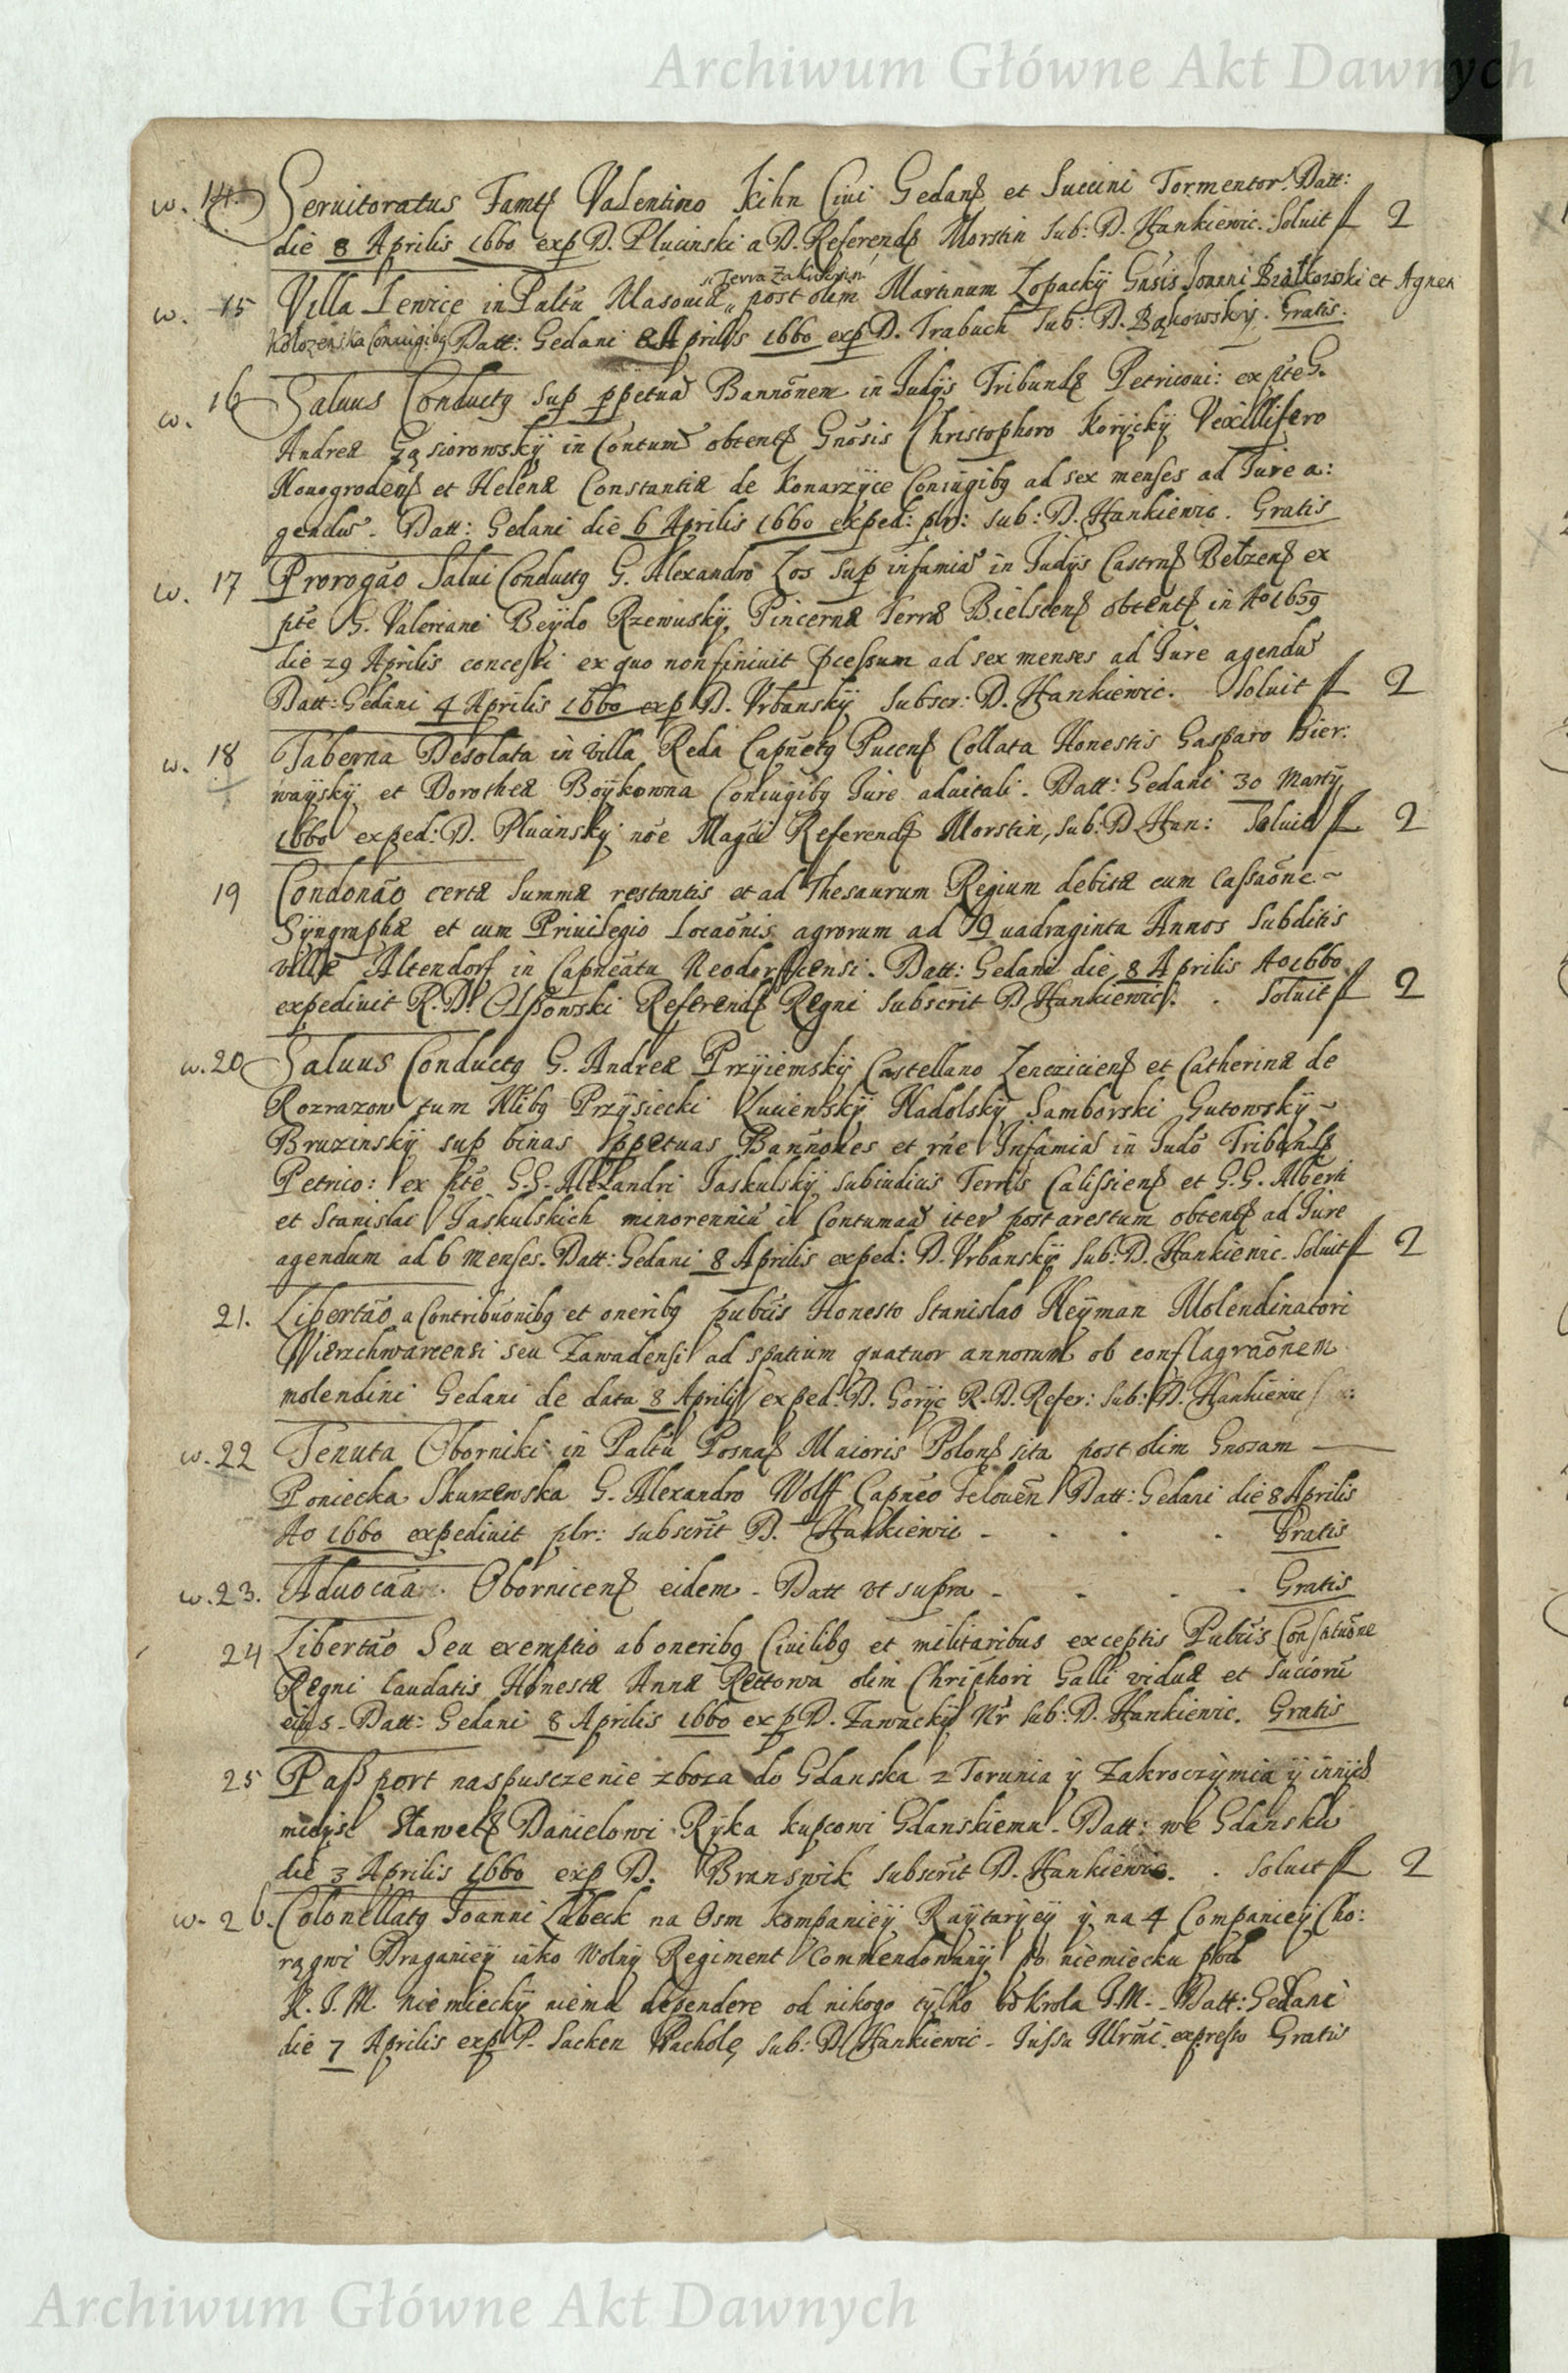 Archiwum Główne Akt Dawnych
w. 14. Seruitoratus Famti Valentino Kihn Ciui Gedanſ et Succini Tormentor. Datt:
die 8 Aprilis 1660 exp D. Plucinski a D. Referendſ Morstin Sub: D. Hankiewic. Soluit fl 2
w. 15 Villa Lewice in Paltu Masouiæ „Terra Zakrocim. post olim Martinum Lopacky Gnsis Joanni Białkowski et Agnet
Conuigibq Datt: Gedani 8 Aprilis 1660 exp D. Trabuch Sub: D. Bąkowskij. Gratis.
w. 16 Saluus Conductq sup ppetua Bannonem in Judijs Tribunlſ Petriconi: ex pte G.
Andreæ Gąsiorowskÿ in Contum obtentſ Gnosis Christophoro Korÿckÿ Vexillifero
Nouogrodenſ et Helenæ Constantiæ de Konarzÿce Coniugibq ad sex menses ad Jure a:
gendu. Datt: Gedani die 6 Aprilis 1660 exped: plr: sub: D. Hankiewic. Gratis
w. 17 Prorogao Salui Conductq G. Alexandro Los Sup infamia in Judÿs Castrnſ Belzenſ ex
pte G. Valeriani Beÿdo Rzewuskÿ, Pincernæ Terræ Bielscenſ obtentſ in Ao 1659
die 29 Aprilis concessi ex quo non finiuit pcessum ad sex menses ad Jure agendu
Datt: Gedani 4 Aprilis 1660 exp D. Vrbanskÿ Subscr: D. Hankiewic. Soluit fl 2
w. 18 Taberna Desolata in villa Reda Capnetq Pucenſ Collata Honestis Gasparo Bier:
waÿskÿ et Dorotheæ Boÿkowna Coniugibq Jure aduitali. Datt: Gedani 30 Martÿ
1660 exped: D. Plucinskÿ noe Magci Referendſ Morstin, sub: D Han: Soluit fl 2
19 Condonao certæ Summæ restantis et ad Thesaurum Regium debitæ cum Cassaone ~
Sÿngraphæ et cum Priuilegio Locaonis agrorum ad Quadraginta Annos Subditis
villæ Altendorf in Capneatu Neodorfficensi. Datt: Gedani die 8 Aprilis Ao 1660
expediuit R. D. Olszowski Referendſ Regni Subscrit D Hankiewicſ. . Soluit fl 2
w. 20 Saluus Conductq G. Andreæ Przÿiemskÿ Castellano Lencziciensſ et Catherinæ de
Rozrazow tum Nlibq Przÿsiecki Nadolskÿ Samborski Gutowskÿ ~
Bruzinskÿ sup binas ppetuas Bannones et rne Infamia in Judo Tribunlſ
Petrico: ex pte G.G. Alexandri Jaskulskÿ Subiudicis Terris Calissienſ et G.G. Alberti
et Stanislai Jaskulskich minorenniu in Contumaa iter post arestum obtentſ ad Jure
agendum ad 6 menses. Datt: Gedani 8 Aprilis exped: D. Vrbanskÿ Sub: D. Hankiewic. Soluit fl 2
21. Libertao a Contribuonibq et oneribq publis Honesto Stanislao Heÿman Molendinatori
seu Zawadensi ad spatium quatuor annorum ob conflagraonem
molendini Gedani de data 8 Aprilis exped: D. Gorÿc R. D. Refer: Sub: D. Hankiewic
w. 22 Tenuta Oborniki in Paltu Posnaſ Maioris Polonſ sita post olim Gnosam
Poniecka Skurzewska G. Alexandro Wolff Capneo Felouen Datt: Gedani die 8 Aprilis
Ao 1660 expediuit plr: subscrit D. Hankiewic - . . . Gratis
w. 23. Aduocaa Obornicenſ eidem - Datt vt supra - - - - Gratis
24 Libertao Seu exemptio ab oneribq Ciuilibq et militaribus exceptis Publis
Regni laudatis Honestæ Annæ Rettowa olim Chriphori Galli viduæ et succoru
eius - Datt: Gedani 8 Aprilis 1660 exp D. Zawackÿ Nr sub: D. Hankiewic. Gratis
25 Passport na spusczenie zboza do Gdanska z Torunia ÿ Zakroczÿmia ÿ innÿch
mieÿsc Sławetſ Danielowi Rÿka kupcowi Gdanskiemu - Datt: we Gdansku
die 3 Aprilis 1660 exp D. Branswik subscrit D. Hankiewic. . Soluit fl 2
w. 26. Colonellatq Joanni Lubeck na Osm kompanieÿ Raÿtarÿeÿ ÿ na 4 Companieÿ Cho:
rągwi Draganieÿ iako Wolnÿ Regiment Commendowanÿ po niemiecku pod
K. J. M. niemieckÿ niema dependere od nikogo tÿlko od Krola J.M. - Datt: Gedani
die 7 Aprilis exp P. Sacken Pachole, sub: D Hankiewic - Jussu expresso Gratis
Archiwum Główne Akt Dawnych